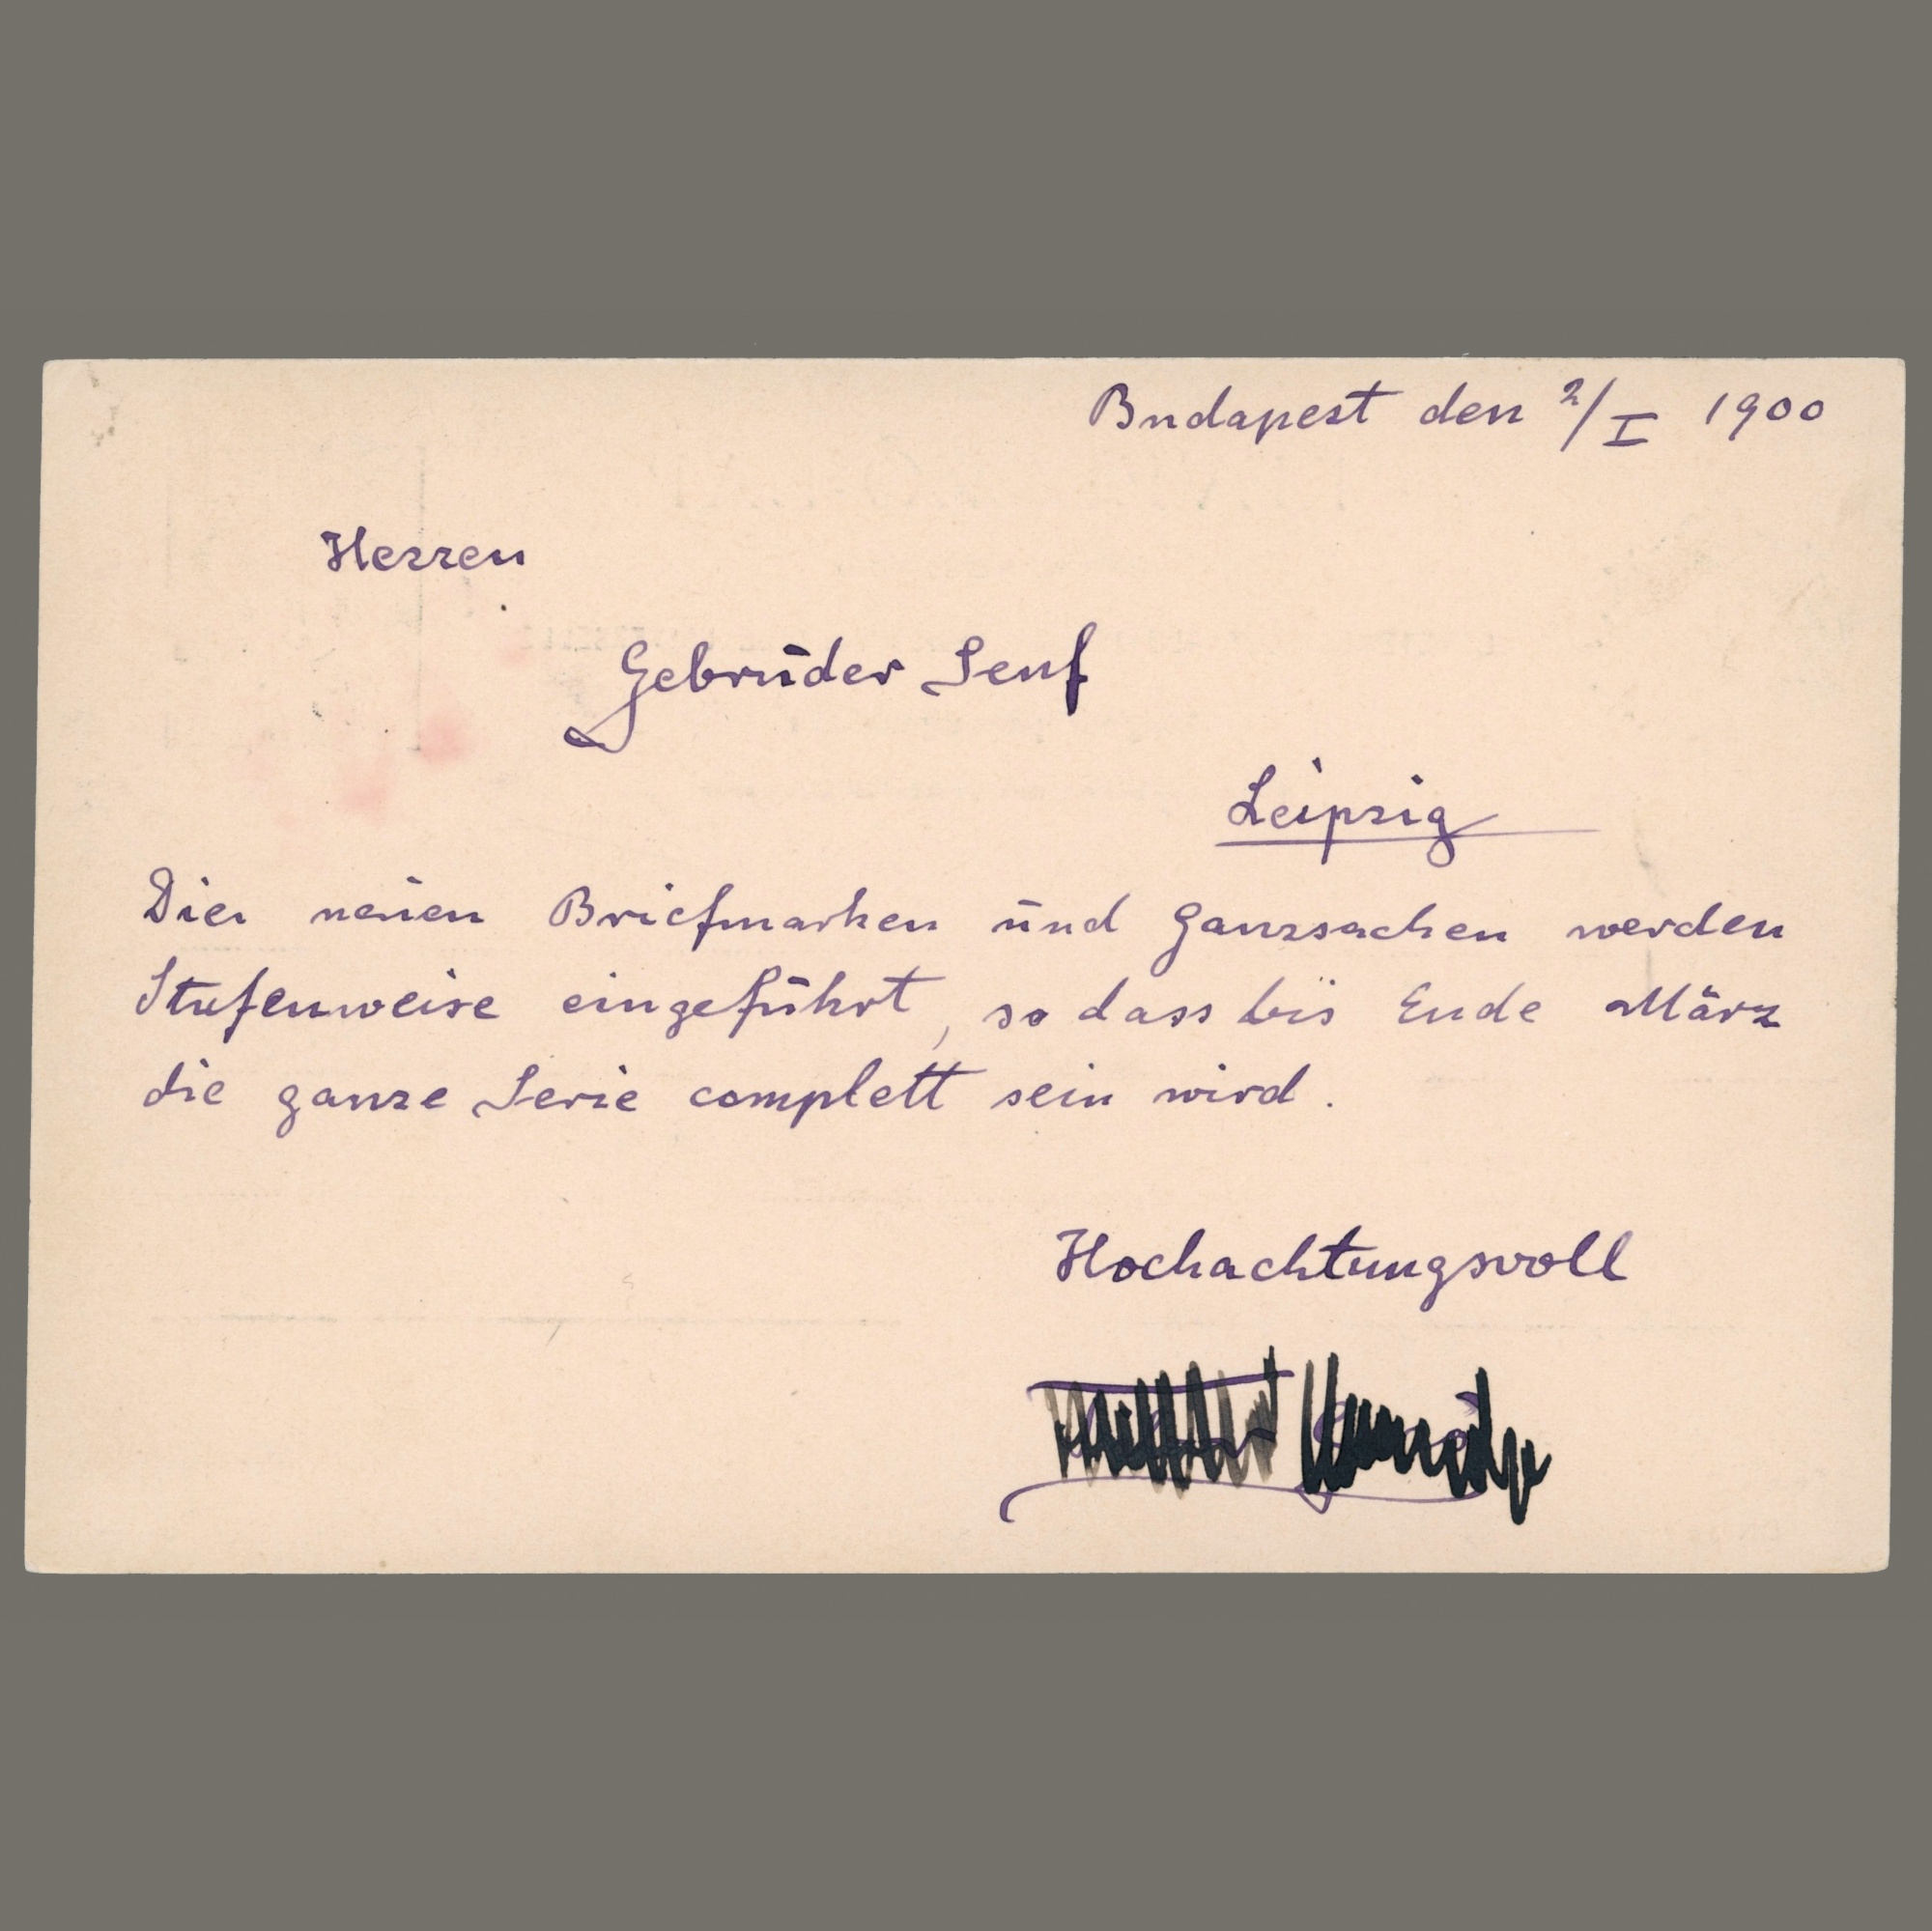 Budapest den 2/I 1900
Herren
Gebrüder Senf
Leipzig
Die neuen Briefmarken und Ganzsachen werden
Stufenweise eingeführt, so dass bis Ende März
die ganze Serie complett sein wird.
Hochachtungsvoll